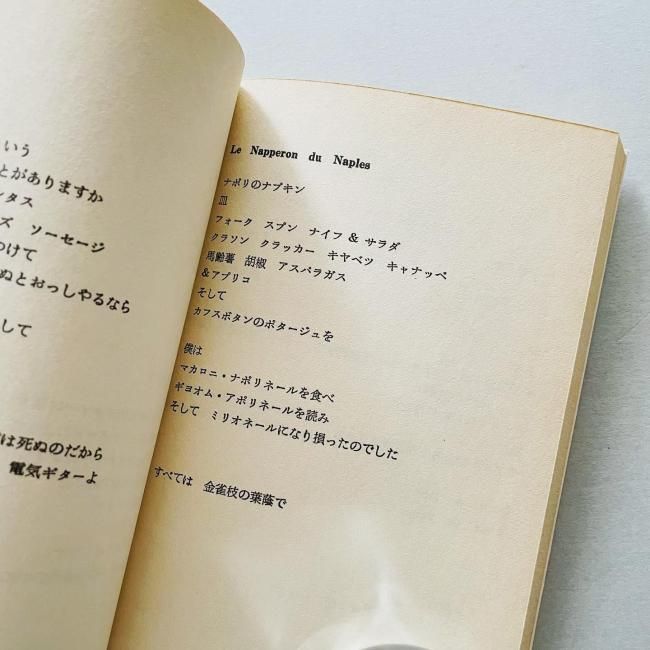 いう
とがありますか
ンタス
ズ ソーセージ
つけて
ぬとおっしやるなら
して
は死ぬのだから
電気ギターよ
Le Napperon du Naples
ナポリのナプキン
皿
フォーク スプン ナイフ & サラダ
クラソン クラッカー キヤベツ キャナッペ
馬鈴薯 胡椒 アスパラガス
&アプリコ
そして
カフスボタンのポタージュを
僕は
マカロニ・ナポリネールを食べ
ギヨオム・アポリネールを読み
そして ミリオネールになり損ったのでした
すべては 金雀枝の葉蔭で